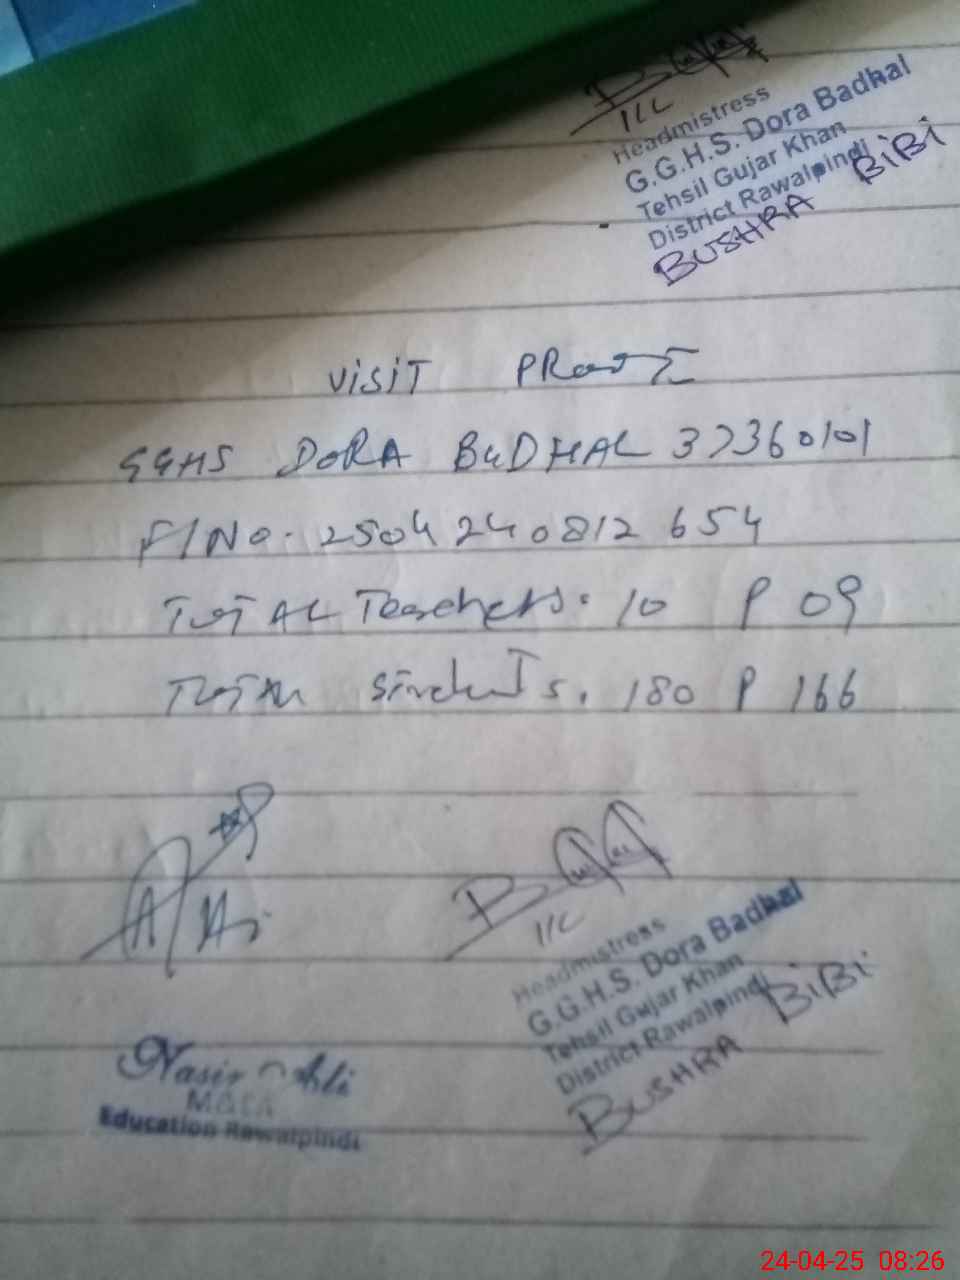 IIC
Headmistress
G.G.H.S. Dora Badhal
Tehsil Gujar Khan
District Rawalpindi
BUSHRA BiBi
ViSiT PRooF
GGHS DORA BUDHAL 37360101
F/No. 2504240812654
TOTAL Teachers. 10 P 09
TOTAL Students. 180 P 166
IIC
Headmistress
G.G.H.S. Dora Badhal
Tehsil Gujar Khan
District Rawalpindi
BUSHRA BiBi
Nasir Ali
Education Rawalpindi
24-04-25 08:26